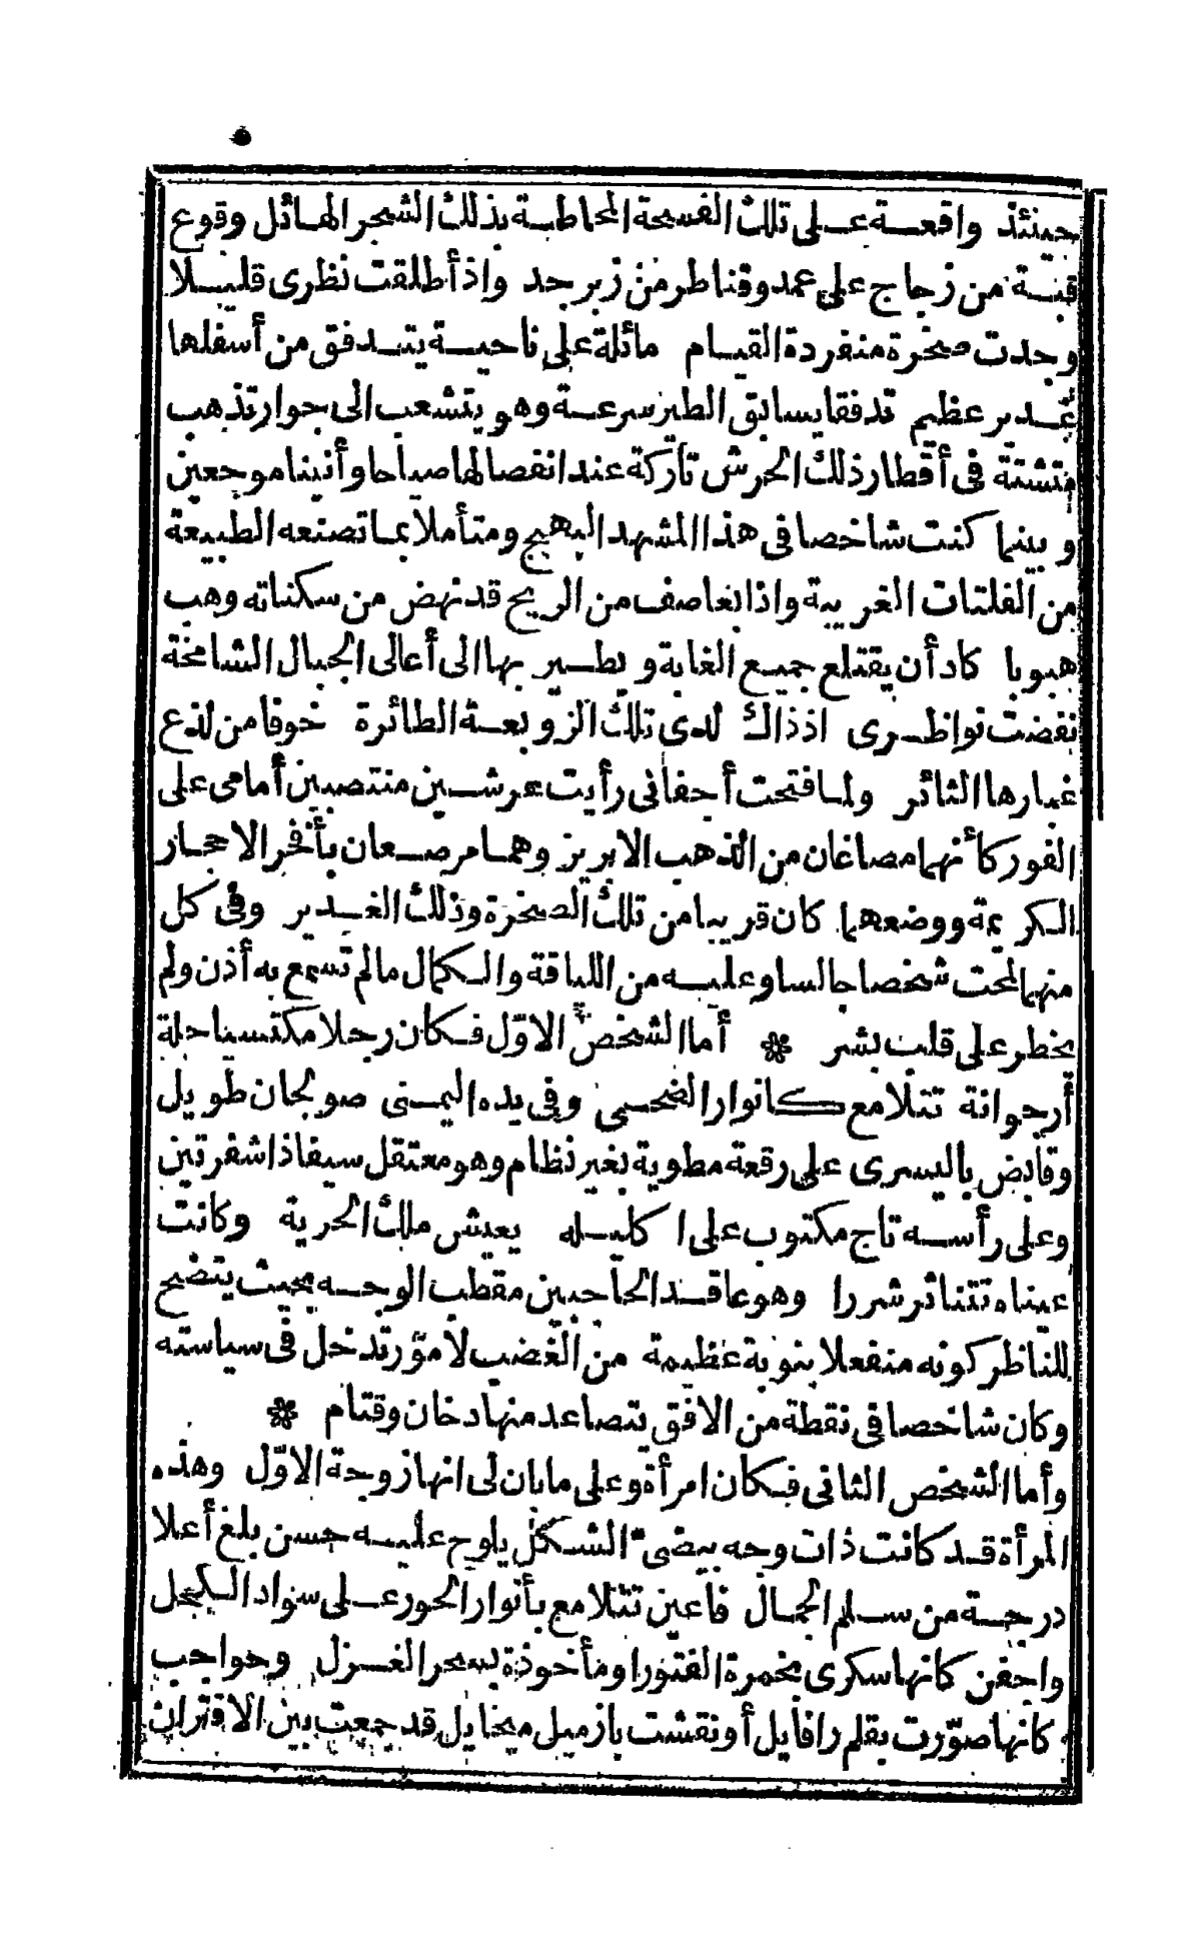 حينئذ واقعة على تلك الفسيحة المحاطة بذلك الشجر الهائل وقوع
قبة من زجاج على عمد وقناطر من زبرجد واذ أطلقت نظرى قليلا
وجدت صخرة منفردة القيام مائلة على ناحية يتدفق من أسفلها
غدير عظيم تدفقا يسابق الطير سرعة وهو يتشعب الى جوار تذهب
متشتتة فى أقطار ذلك الحرش تاركة عند انفصالها صياحا وأنينا موجعين
وبينما كنت شاخصا فى هذا المشهد البهيج ومتأملا بما تصنعه الطبيعة
من الفلتات الغريبة واذا بعاصف من الريح قد نهض من سكناته وهب
هبوبا كاد أن يقتلع جميع الغابة ويطير بها الى أعالى الجبال الشامخة
نقضت نواظرى اذ ذاك لدى تلك الزوبعة الطائرة خوفا من لذع
غبارها الثائر ولما فتحت أجفانى رأيت عرشين منتصبين أمامى على
الفور كأنهما مصاغان من الذهب الابريز وهما مرصعان بأفخر الاحجار
الكريمة ووضعهما كان قريبا من تلك الصخرة وذلك الغدير وفى كل
منهما لمحت شخصا جالسا وعليه من اللباقة والكمال مالم تسمع به أذن ولم
يخطر على قلب بشر ❊ أما الشخص الاوّل فكان رجلا مكتسيا حلة
أرجوانة تتلامع كانوار الضحى وفى يده اليمنى صولجان طويل
وقابض باليسرى على رقعة مطوية بغير نظام وهو معتقل سيفا ذا شفرتين
وعلى رأسه تاج مكتوب على اكليله يعيش ملك الحرية وكانت
عيناه تتناثر شررا وهو عاقد الحاجبين مقطب الوجه بحيث يتضح
للناظر كونه منفعلا بنوبة عظيمة من الغضب لامور تدخل فى سياسته
وكان شاخصا فى نقطة من الافق يتصاعد منها دخان وقتام ❊
وأما الشخص الثانى فكان امرأة وعلى ما بان لى انها زوجة الاوّل وهذه
المرأة قد كانت ذات وجه بيضىّ الشكل يلوح عليه حسن بلغ أعلا
درجة من سلم الجمال فاعين تتلامع بأنوار الحور على سواد الكحل
واجفن كانها سكرى بخمرة الفتور او مأخوذة بسحر الغزل وحواجب
كانها صوّرت بقلم رافايل أو نقشت بازميل ميخايل قد جمعت بين الاقتران